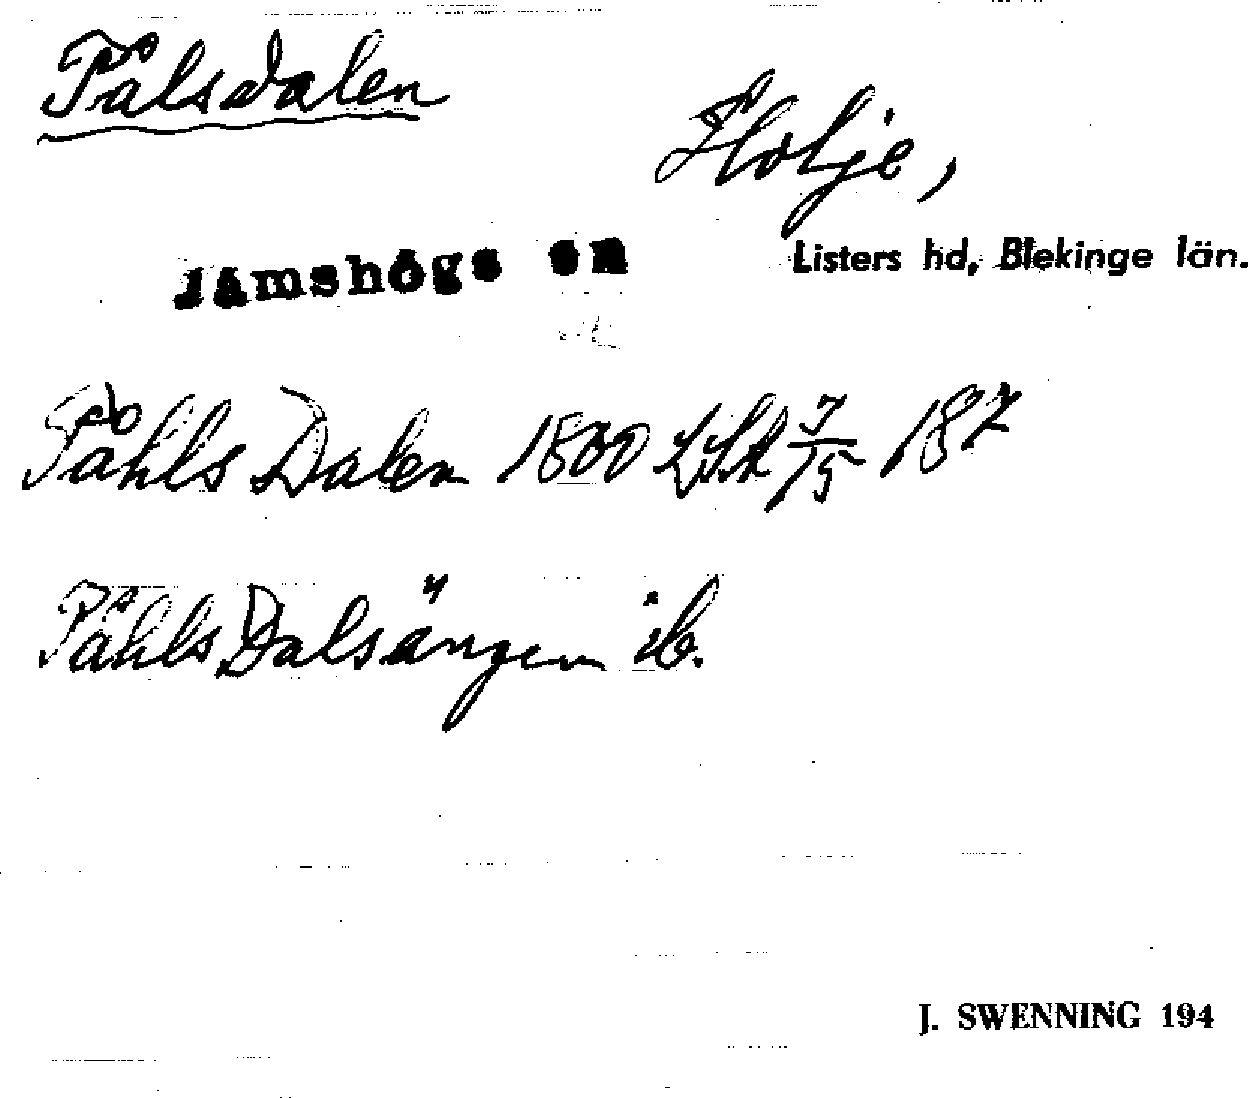 Pålsdalen
Holje,
Jämshögs sn
Listers hd, Blekinge län.
Påhls Dalen 1800 LSk 7/5 187
Påhls Dalsängen ib.
J. SWENNING 194